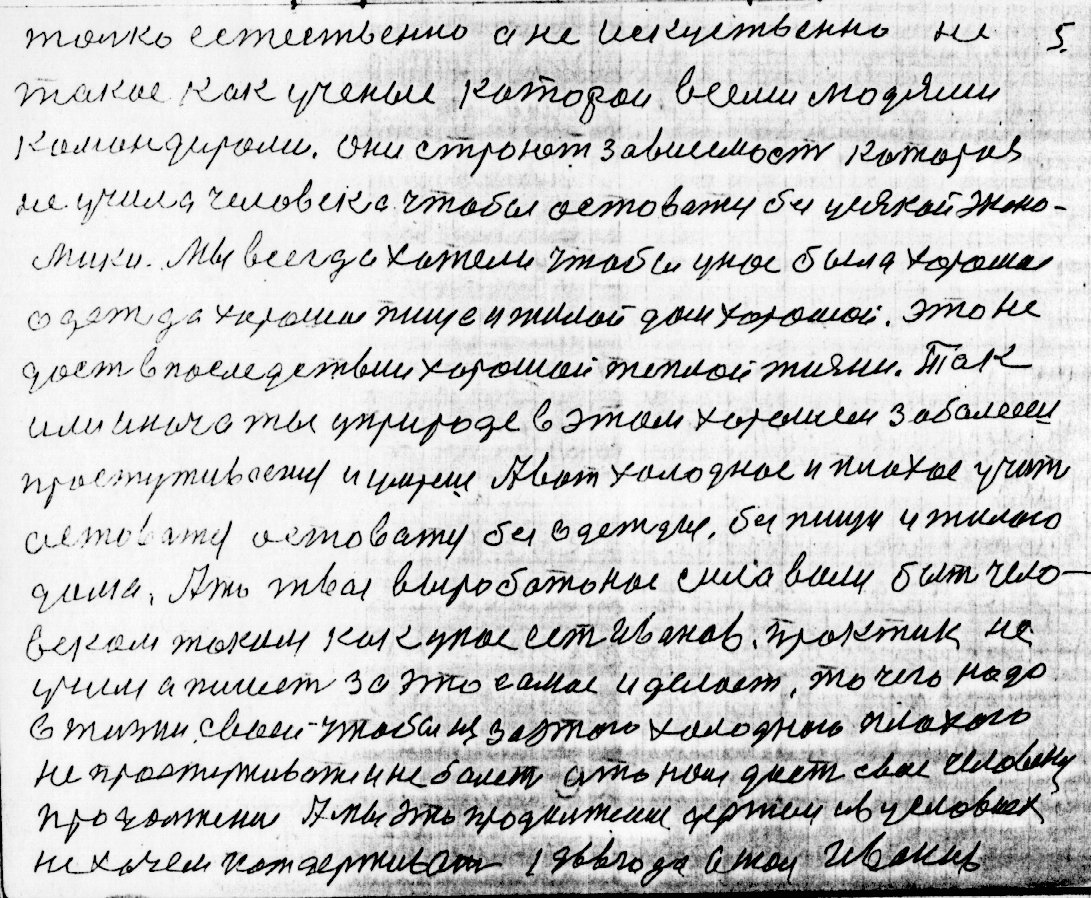 толко естественно а не искуственно не 5.
такое как ученые которои всеми людями
командироли. они строют зависемост которая
не учила человека чтобы остоватця без усякой эконо-
мики. Мы всегда хотели чтобы унас была хорошая
одежда хорошая пища и жилой дом хорошой. это не
даст впоследствии хорошой теплой жизни. Так
или иначе ты уприроде в этом хорошем заболееш
простутивсяця и умреш А вот холодное и плохое учит
остоватця остоватця без одежды, без пищи и жилого
дома. А то твое выроботоное сила воли быт чело-
веком таким как унас ест Иванов. практик не
учил а пишет за это самое и делает, то чего надо
в жизни своей чтобы из за этого холодного плохого
не простуживатця и не болет а то нам даст свое человеку
продолжение А мы это продолжение держем их условиях
не хочем потдерживат года Иванов